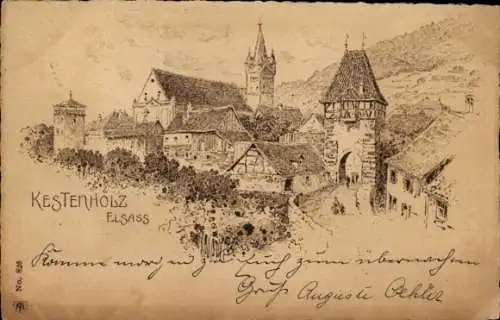 KESTENHOLZ
ELSASS
Komme morgen zu Euch zum übernachten
Gruß Auguste Oehler
No. 825